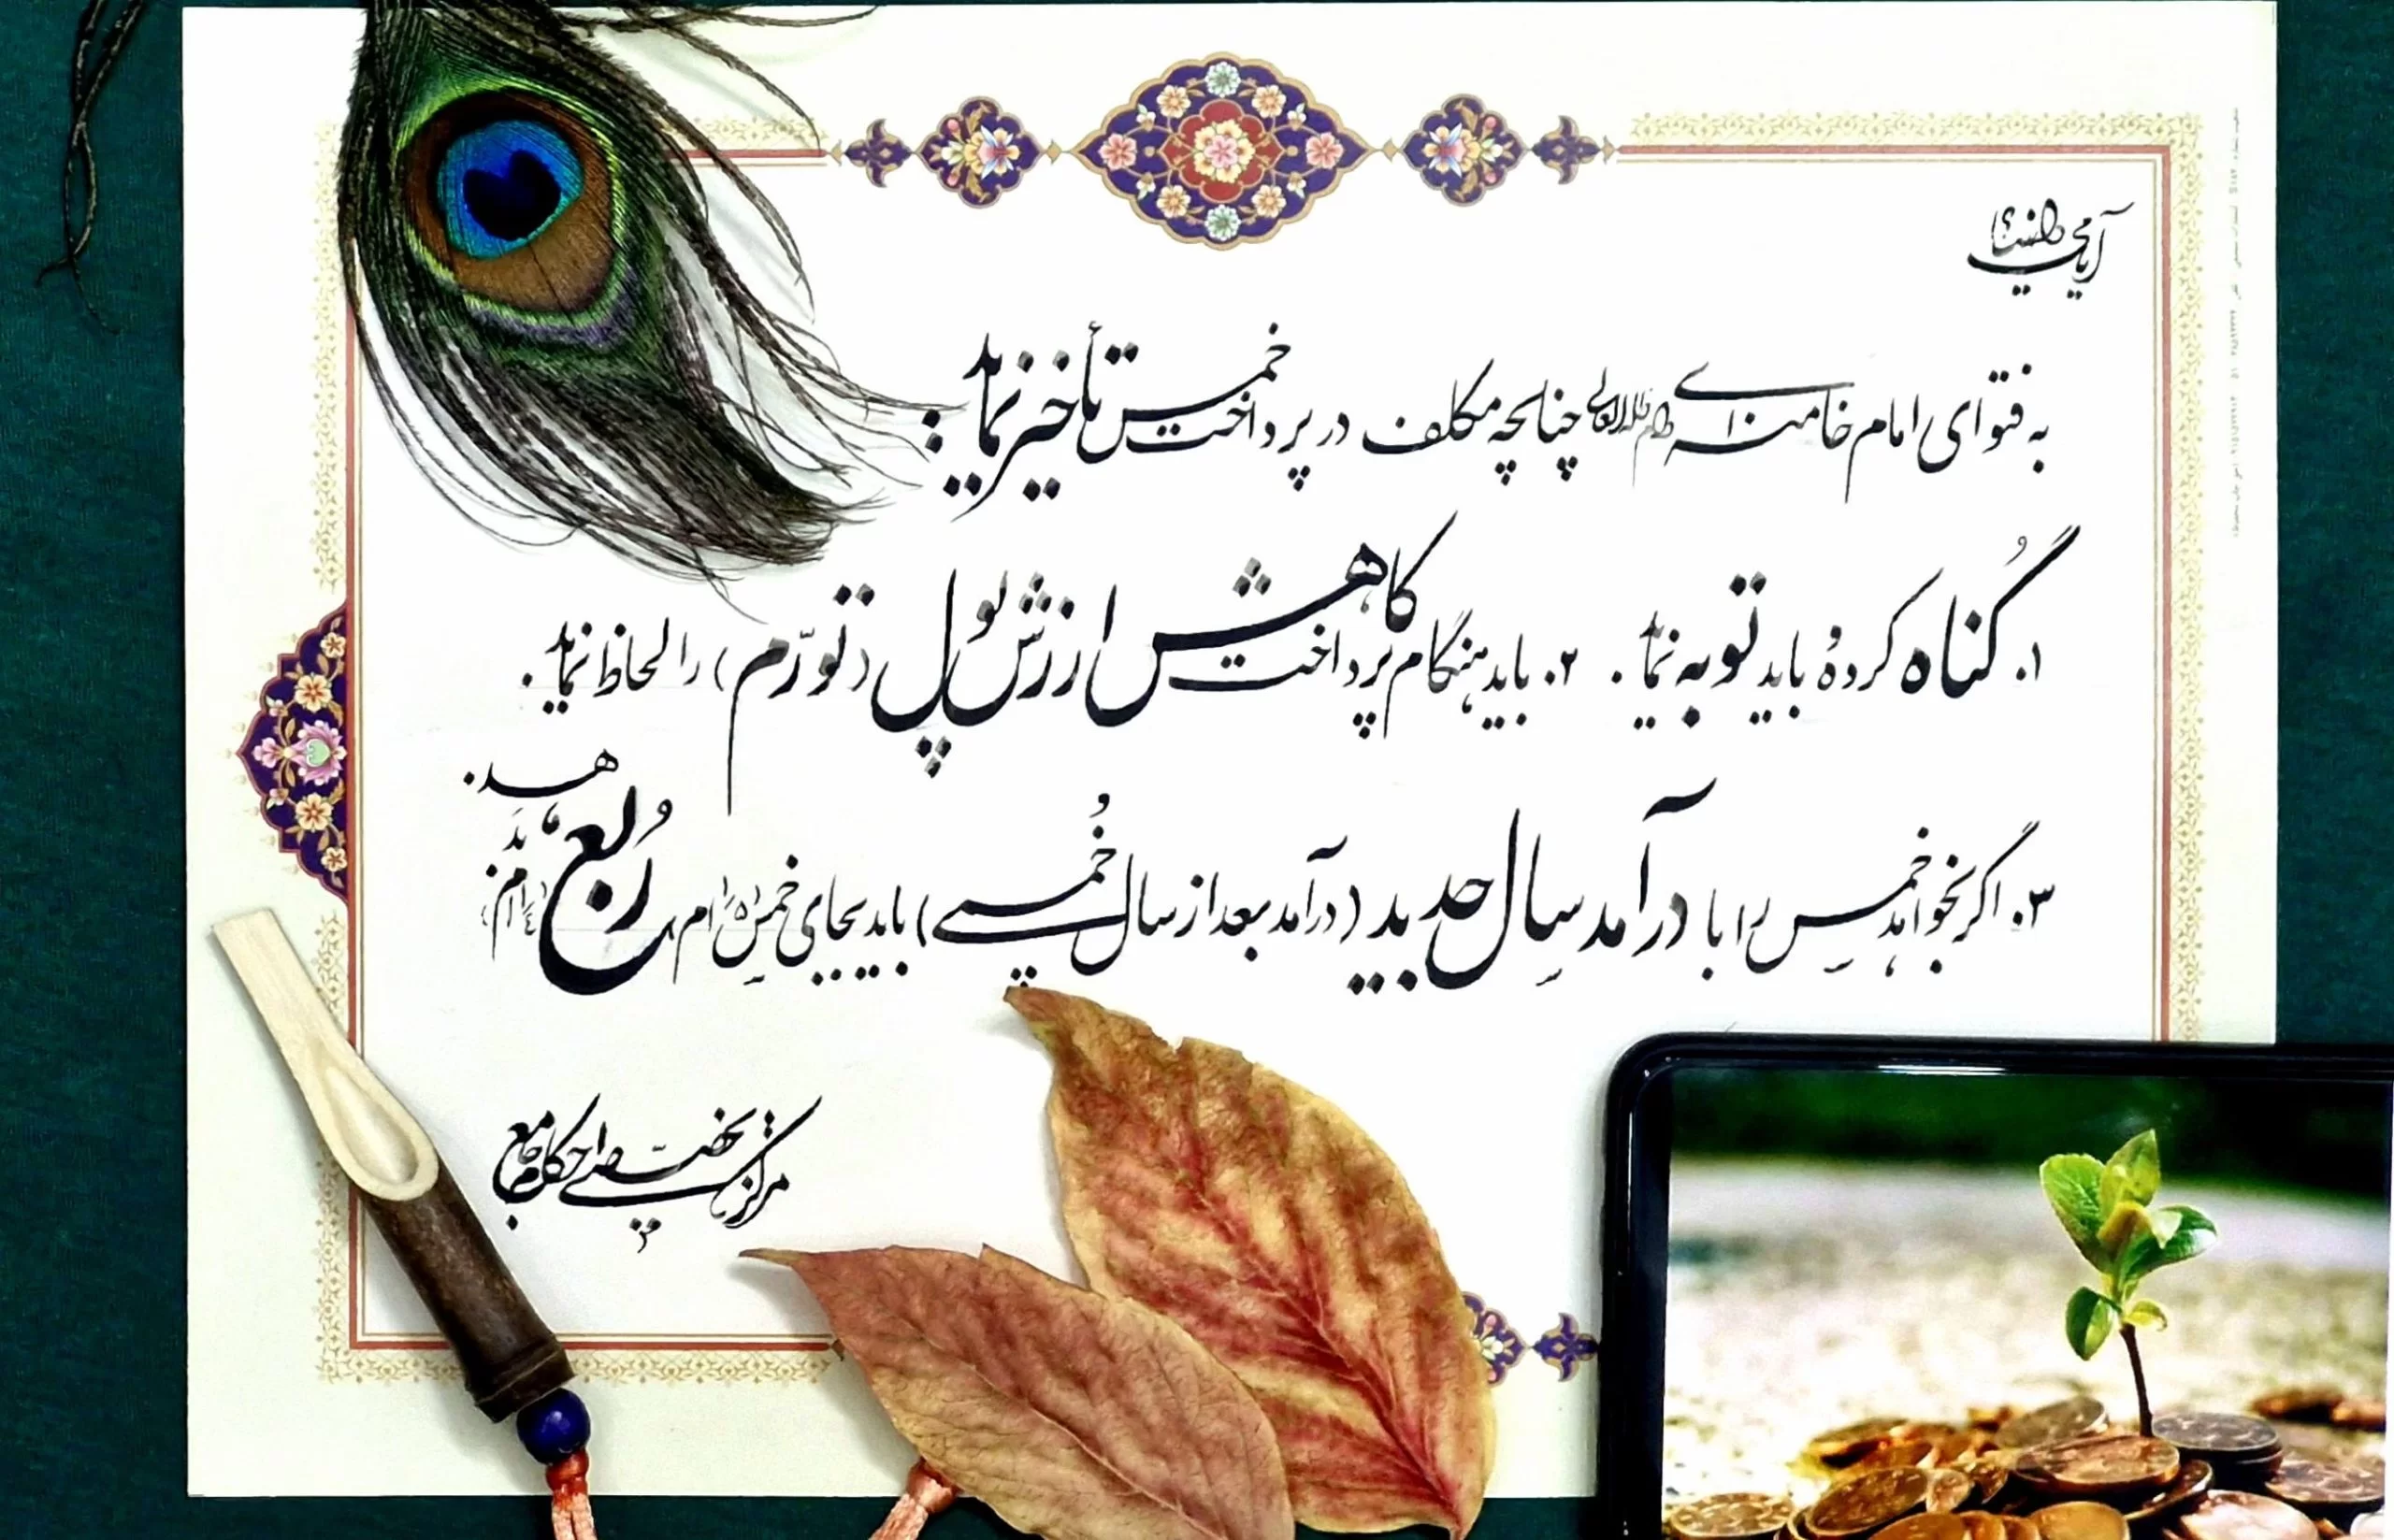 آیا می‌دانستید؟!
به فتوای امام خامنه‌ای دام‌ظله‌العالی چنانچه مکلف در پرداخت خمس تأخیر نماید:
۱. گُناه کرده و باید توبه نماید. ۲. باید هنگام پرداخت کاهش ارزش پول (تورّم) را لحاظ نماید.
۳. اگر بخواهد خمس را با درآمد سالِ جدید (درآمد بعد از سال خُمسی) باید بجای خمس
رُبع بدَهد.
مرکز تخصّصی احکام جامع